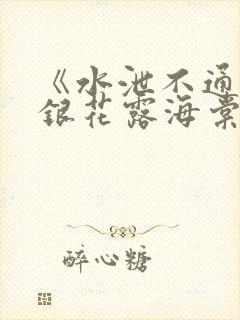 《水泄不通
银花露海棠
醉心糖